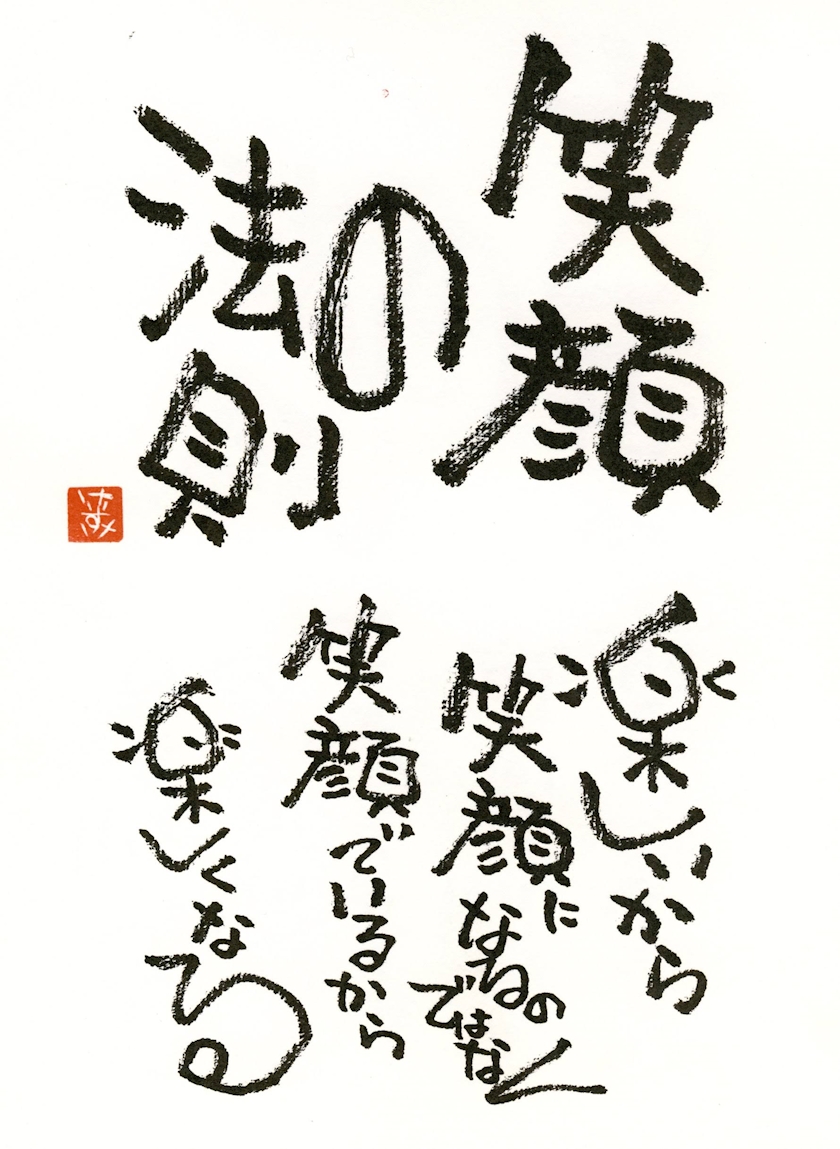 笑顔
の
法則
楽しいから
笑顔に
なるの
ではなく
笑顔でいるから
楽しくなる